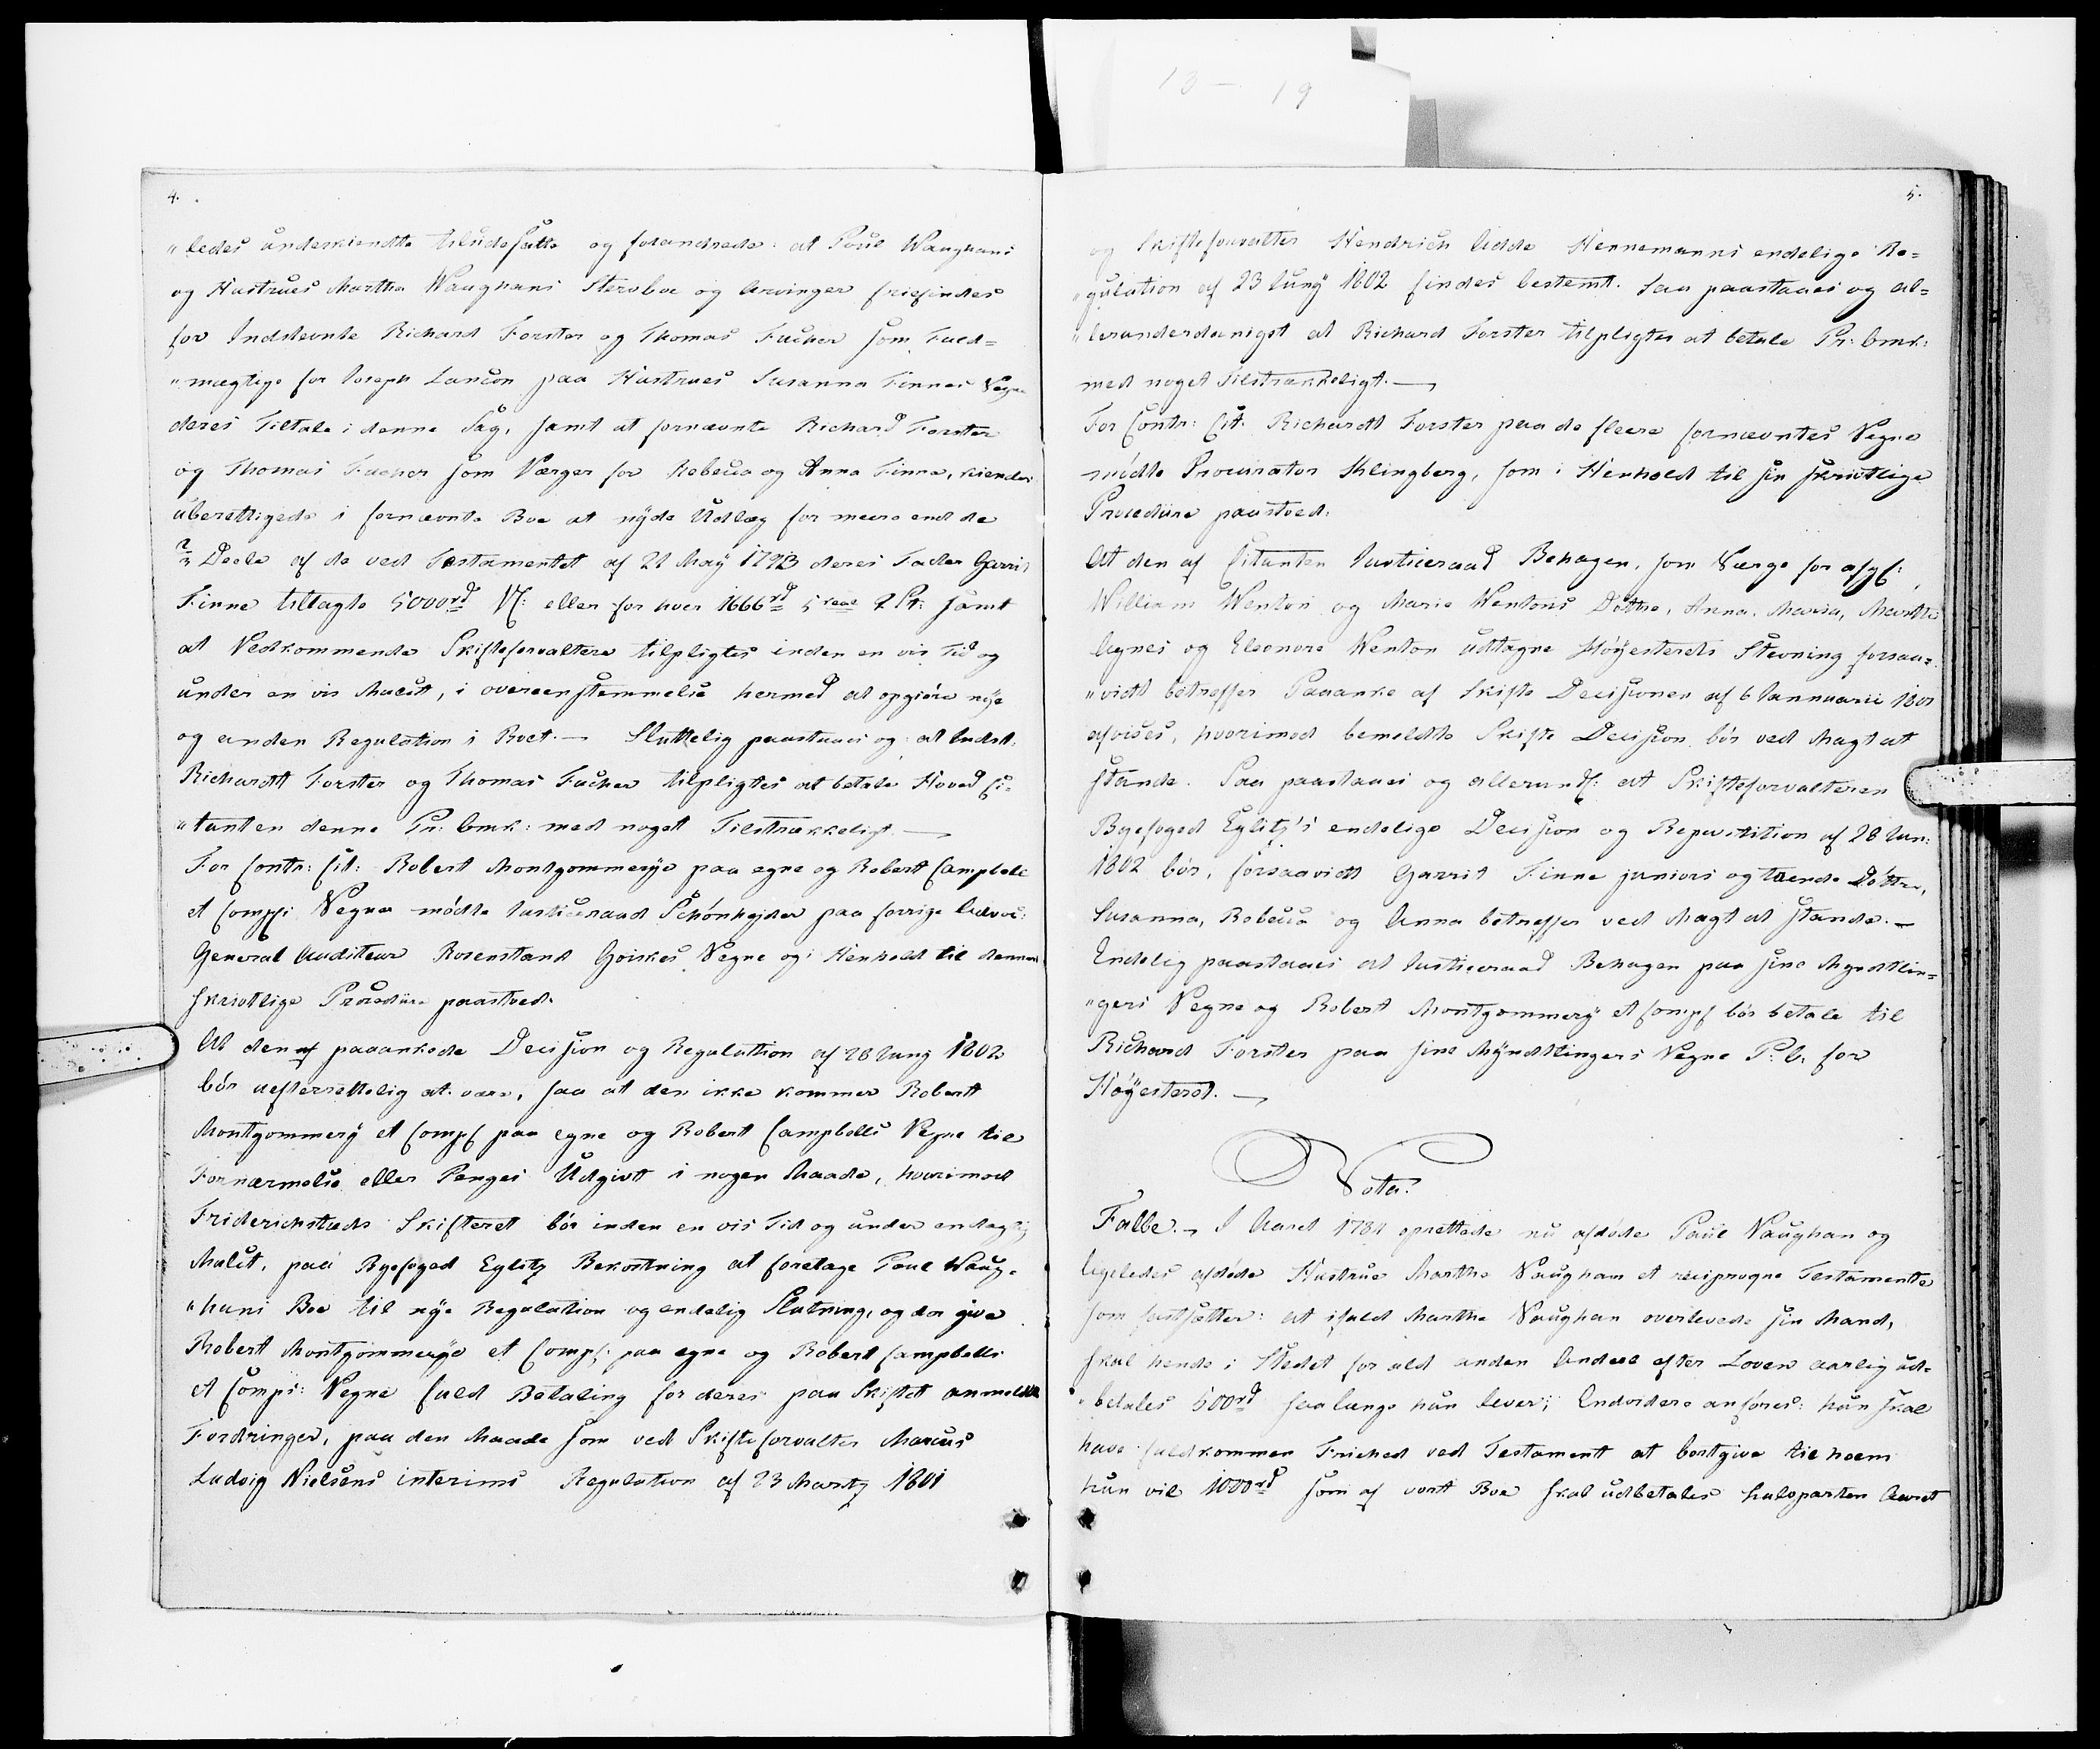 13 - 19
4.
"ledes underkiendte tilsidesatte og forandrede: at Poul Waughans
og Hustrues Martha Waughans Sterboe og Arvinger friefindes
for Indstevnte Richard Forster og Thomas Fucher som Fuld=
"mægtige for Joseph Lanson paa Hustrues Susanna Finnes Vegne
deres Tiltale i denne Sag, samt at fornævnte Richard Forster
og Thomas Fucher som Værger for Rebecca og Anna Finne, kiendes
uberettigede i fornævnte Boe at nyde Udlæg for meere end de
2/3 Deele af de ved Testamentet af 21 May 1793 deres Fader Garrit
Finne tillagte 5000rd VC: eller for hver 1666rd 5 real 2 St: samt
at Vedkommende Skifteforvaltere tilpligtes inden en vis Tid og
under en vis Mulct, i overeenstemmelse hermed at opgiøre nye
og anden Regulation i Boet. — Sluttelig paastaaes og: at Indst.
Richardt Forster og Thomas Fucher tilpligtes at betale Hoved Ci-
"tanten denne Pr: Omk: med noget Tilstrækkeligt. —
For Contr: Cit: Robert Montgommerye paa egne og Robert Campbell
et Compf: Vegne mødte Justitsraad Schönheyder paa forrige Advoc:
General Auditeur Rosenstand Goiskes Vegne og i Henhold til dennes
skrivtlige Procedure paastoed.
At den af paaankede Decision og Regulation af 28 Juny 1802
bør uefterrettelig at være, saa at den ikke kommer Robert
Montgommery et Compf paa egne og Robert Campbells Vegne til
Fornærmelse eller Penges Udgivt i nogen Maade, hvorimod
Friderichstæds Skifteret bør inden en vis Tid og under en daglig
Mulct, paa Byefoged Eglitz Bekostning at foretage Poul Waug-
"hans Boe til nye Regulation og endelig Slutning, og der give
Robert Montgommerye et Compf: paa egne og Robert Campbells
et Comps: Vegne fuld Betaling for deres paa Skiftet anmeldte
Fordringer, paa den Maade som ved Skifteforvalter Marcus
Ludvig Nielsens interims Regulation af 23 Martz 1801
5.
og Skifteforvalter Hendrich Udde Hennemanns endelige Re=
"gulation af 23 Juny 1802 findes bestemt. Saa paastaaes og al=
"lerunderdanigst at Richard Forster tilpligtes at betale Pr: Omk:
med noget Tilstrækkeligt. —
For Contr: Cit: Richardt Forster paa de fleere fornævntes Vegne
mødte Procurator Klingberg, som i Henhold til sin skrivtlige
Procedure paastoed:
At den af Citanten Justitsraad Behagen, som Værge for afg:
William Wenton og Marie Wentons Døttre, Anna, Maria, Martha
Agnes og Eleonore Wenton udtagne Høyesterets Stevning forsaa=
"vidt betreffer Paaanke af Skifte Decisionen af 6 Januarii 1801
afvises, hvorimod bemeldte Skifte Decision bør ved Magt at
stande. Saa paastaaes og allerundf: at Skifteforvalteren
Byefoged Eglitz's endelige Decision og Repartition af 28 Jun:
1802 bør, forsaavidt Garrit Finne juniors og trende Døttre,
Susanna, Rebecca og Anna betreffer ved Magt at stande. —
Endelig paastaaes at Justitsraad Behagen paa sine Myndtlin=
"gers Vegne og Robert Montgommery et Compf bør betale til
Richard Forster paa sine Myndtlingers Vegne P: O: for
Høyesteret. —
Vota.
Falbe. — I Aaret 1781 oprettede nu afdøde Paul Vaughan og
ligeledes afdøde Hustrue Martha Vaughan et reciproqve Testamente
som fastsætter: at ifald Martha Vaughan overlevede sin Mand,
skal hende i Stedet for ald anden Andeel efter Loven aarlig ud-
"betales 500rd saalænge hun lever; Endvidere anføres: hun skal
have fuldkommen Friehed ved Testament at bortgive til hvem
hun vil 1000rd som af vort Boe skal udbetales halvparten Aaret